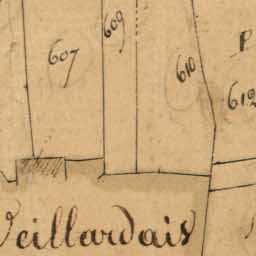 609
P
607
610
612
Veillardais